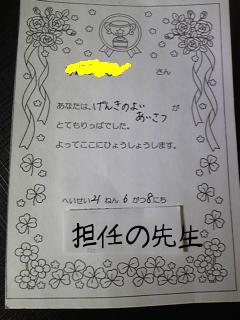 さん
あなたは、げんきのよい
あいさつ が
とてもりっぱでした。
よってここにひょうしょうします。
へいせい21ねん6がつ8にち
担任の先生